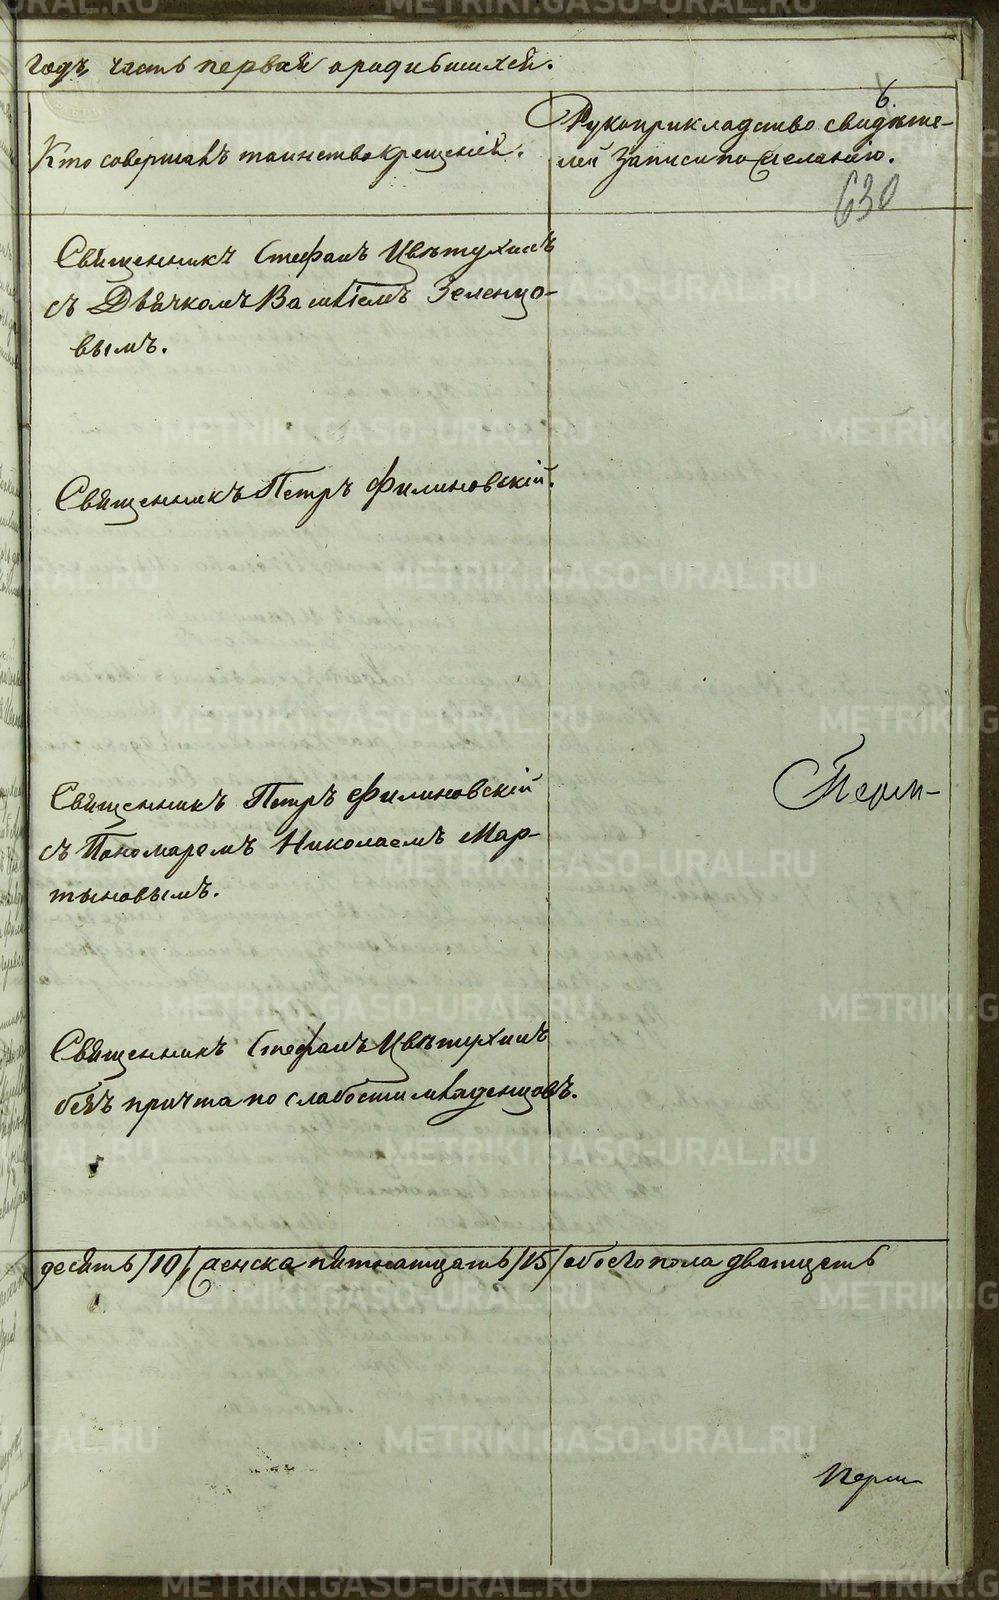 годъ часть первая о родившихся.
6.
Кто совершалъ таинство крещенія.
Рукоприкладство свидѣте-
лей записи по желанію.
630
Священникъ Стефанъ Цвѣтухинъ
съ Дьячкомъ Василіемъ Зеленцо-
вымъ.
Священникъ Петръ Филиновскій.
Священникъ Петръ Филиновскій
съ Пономаремъ Николаемъ Мар-
тыновымъ.
Перм-
Священникъ Стефанъ Цвѣтухинъ
безъ причта по слабости младенцовъ.
десять /10/ женска пятнатцать /15/ обоего пола дватцеть
METRIKI.GASO-URAL.RU